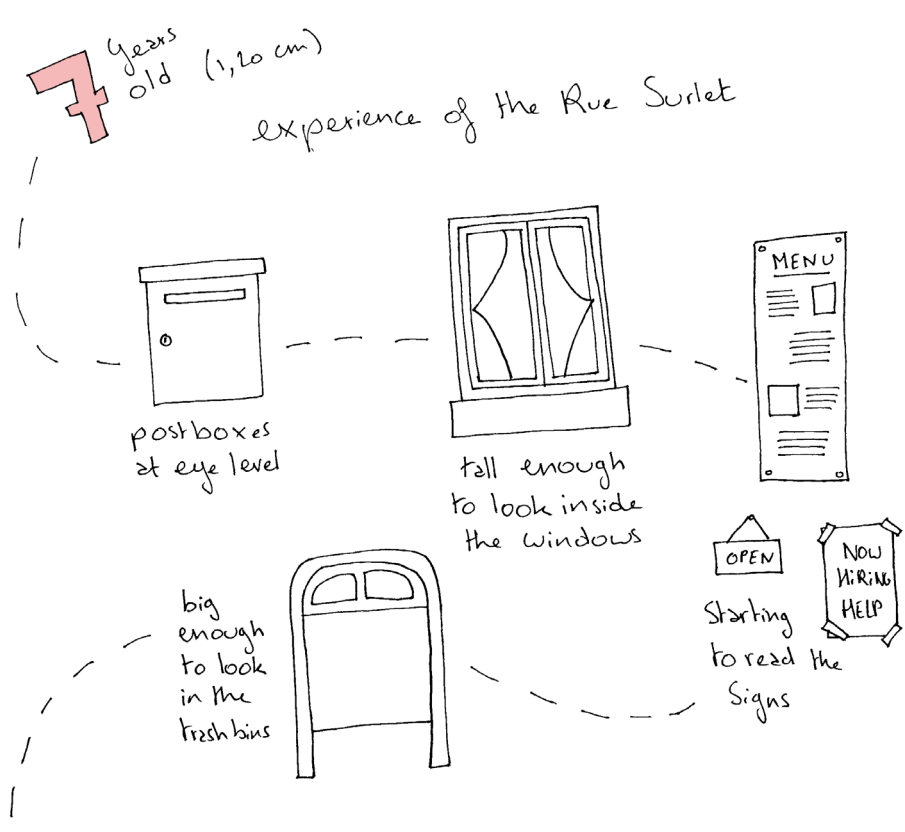 7 years
old (1,20 cm)
experience of the Rue Surlet
postboxes
at eye level
tall enough
to look inside
the windows
MENU
OPEN
NOW
HIRING
HELP
Starting
to read the
Signs
big
enough
to look
in the
trash bins